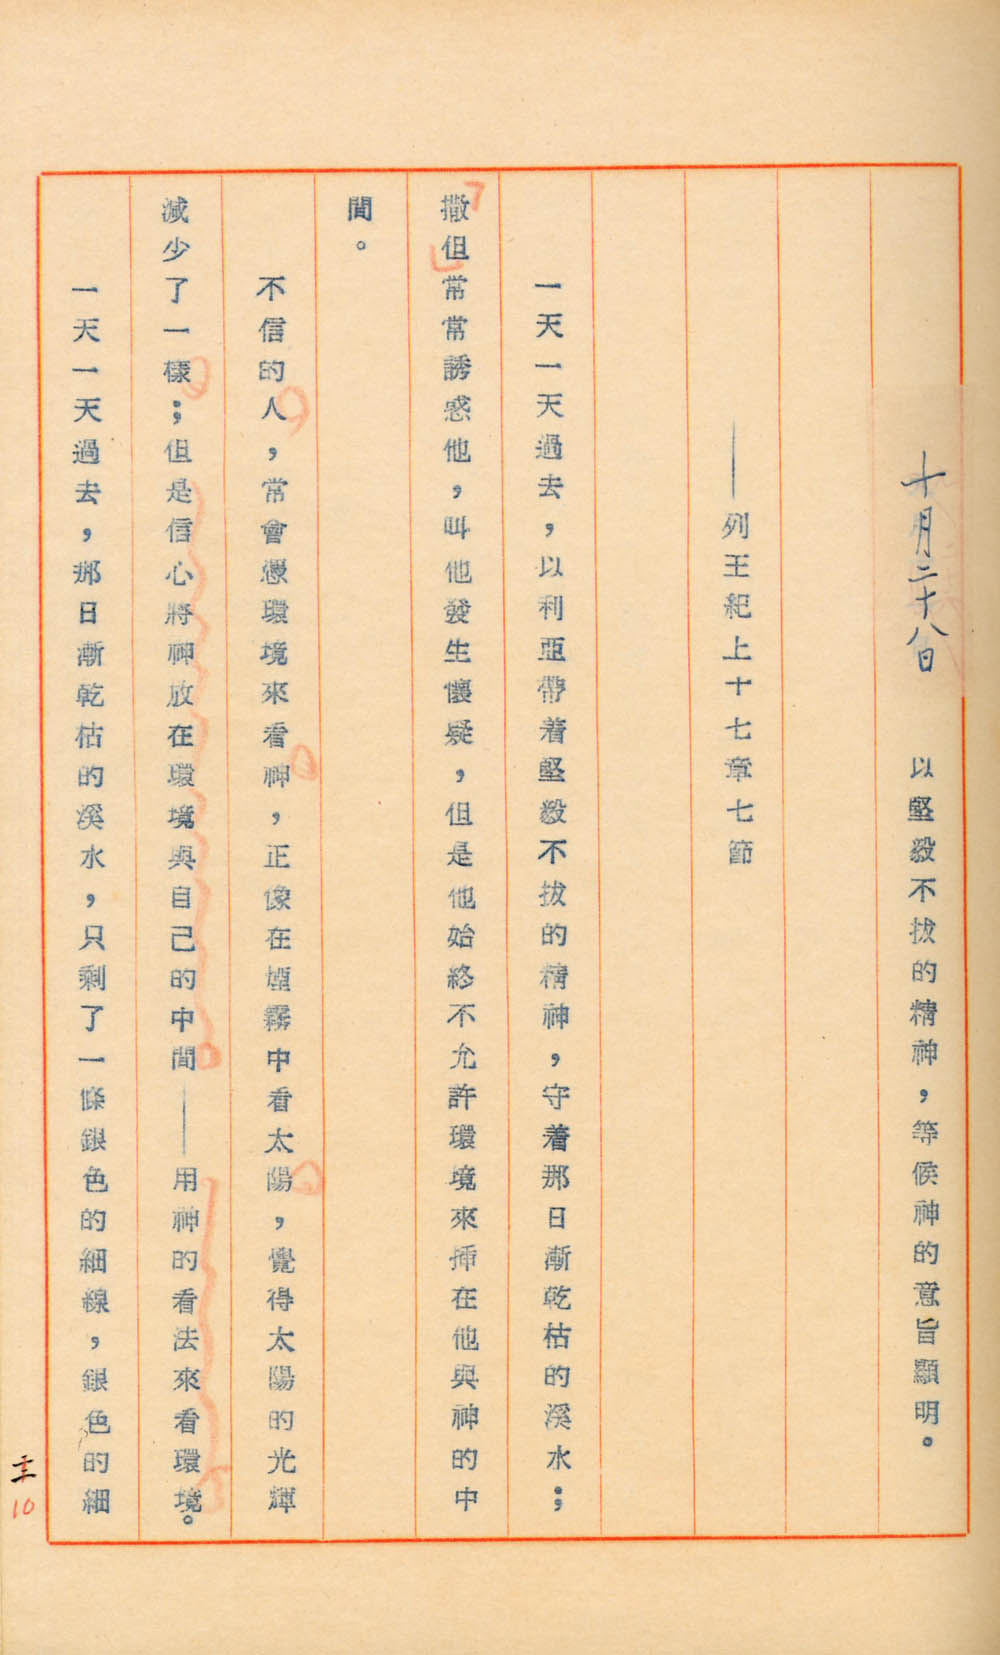 十月二十八日 以堅毅不拔的精神，等候神的意旨顯明。
——列王紀上十七章七節
一天一天過去，以利亞帶着堅毅不拔的精神，守着那日漸乾枯的溪水；
撒但常常誘惑他，叫他發生懷疑，但是他始終不允許環境來揷在他與神的中
間。
不信的人，常會憑環境來看神，正像在煙霧中看太陽，覺得太陽的光輝
減少了一樣；但是信心將神放在環境與自己的中間——用神的看法來看環境。
一天一天過去，那日漸乾枯的溪水，只剩了一條銀色的細線，銀色的細
10